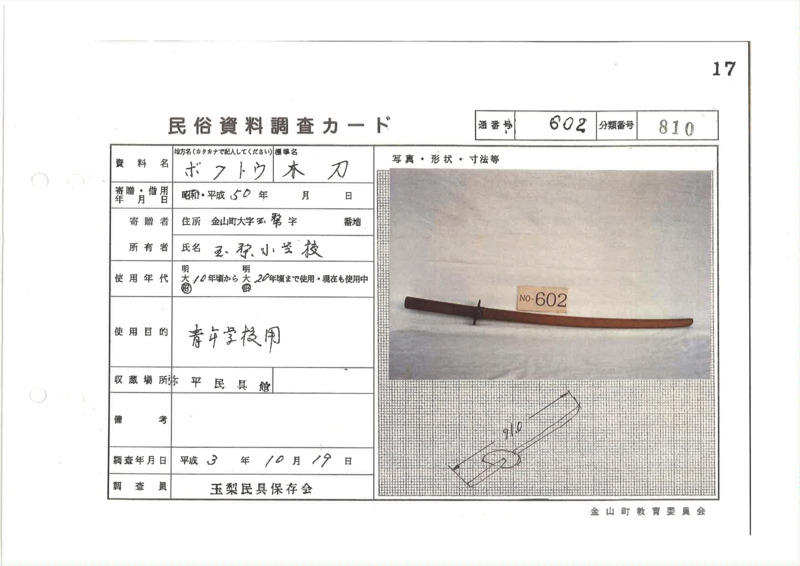 17
民俗資料調査カード
通番号 602 分類番号 810
資料名 地方名(カタカナで記入してください) ボクトウ 標準名 木刀
寄贈・借用年月日 昭和・平成 50年 月 日
寄贈者 住所 金山町大字玉梨字 番地
所有者 氏名 玉梨小学校
使用年代 明大昭10年頃から明大昭20年頃まで使用・現在も使用中
使用目的 青年学校用
収蔵場所 弥平民具館
備考
調査年月日 平成 3年 10月 19日
調査員 玉梨民具保存会
写真・形状・寸法等
NO-602
91.0
金山町教育委員会